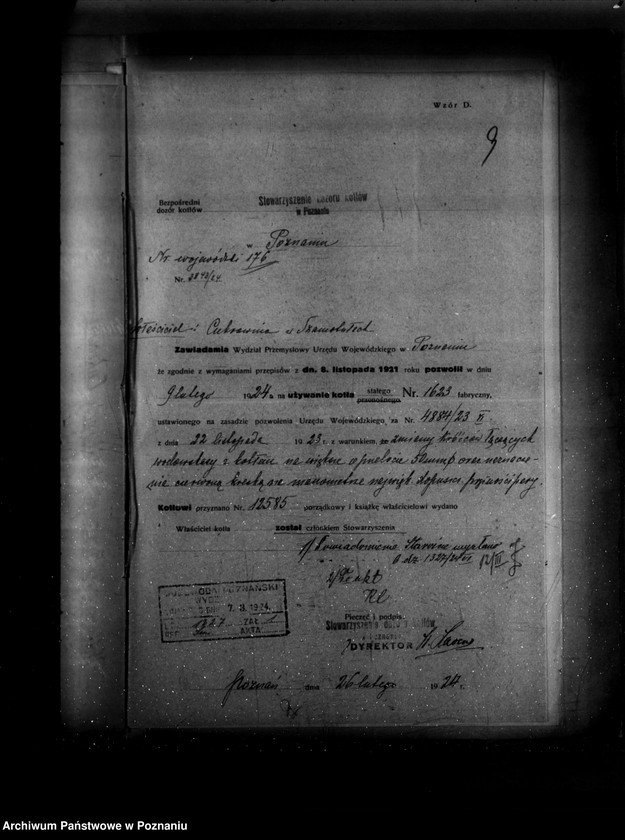 Wzór D.
9
Bezpośredni
dozór kotłów
Stowarzyszenie dozoru kotłów
w Poznaniu
w Poznaniu
Nr wojewódzki 176
Nr.
Właściciel: Cukrownia w Szamotułach
Zawiadamia Wydział Przemysłowy Urzędu Wojewódzkiego w Poznaniu
że zgodnie z wymaganiami przepisów z dn. 6. listopada 1921 roku pozwolił w dniu
9 lutego 1924 r. na używanie kotła stałego Nr. 1623 fabryczny,
przenośnego
ustawionego na zasadzie pozwolenia Urzędu Wojewódzkiego za Nr. 4884/23 VI
z dnia 22 listopada 1923 r. z warunkiem, że zmiany króćców łączących
wodowskazy z kotłem na większe o prześwicie 50 mm oraz
czerwoną kreską na manometrze najwięk. dopuszcz. prężności pary.
Kotłowi przyznano Nr. 12585 porządkowy i książkę właścicielowi wydano
Właściciel kotła został członkiem Stowarzyszenia
1/ Powiadomienie
2/
WOJEWODA POZNAŃSKI
7. 3. 1924.
ZAŁ. 1
AKTA
Pieczęć i podpis.
Stowarzyszenie dozoru kotłów
w Poznaniu
DYREKTOR
Poznań dnia 26 lutego 1924 r.
Archiwum Państwowe w Poznaniu